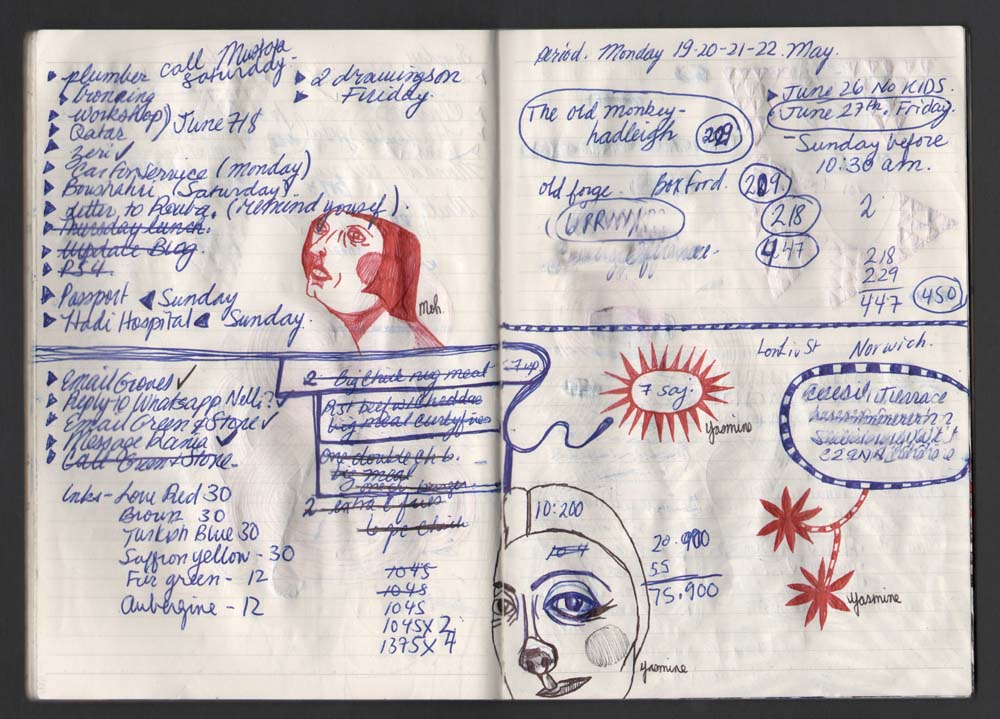 plumber call Mustafa
saturday.
Ironing
workshop)
Qatar ) June 7/8
Zeri ✓
Car for service (monday)
Boushahri (Saturday)
Letter to Rouba. (remind yourself).
Thursday lunch.
Update Blog
PS4
Passport ◀ Sunday
Hadi Hospital ◀ Sunday.
2 drawings on
Friday.
Moh.
Email Groves ✓
Reply to Whatsapp Nelli? ✓
Email Green & Stone ✓
Message Rania ✓
Call Green & Stone.
Inks - Love Red 30
Brown 30
Turkish Blue 30
Saffron yellow - 30
Fur green - 12
Aubergine - 12
2 - big meat
7 up
big meal curly fries
one double
big meal
2 - extra fries
6 pc
1045
1045
1045
1045 x 2
1375 x 4
Period. Monday 19-20-21-22. May.
The old monkey -
hadleigh 229
June 26 No KIDS.
June 27th. Friday.
- Sunday before
10:30 am.
old forge. Boxford. 209.
218
447
2
218
229
447 450
Norwich.
7 Saj.
Yasmine
Terrace
10:200
10-4
20.900
55
75.900
Yasmine
Yasmine